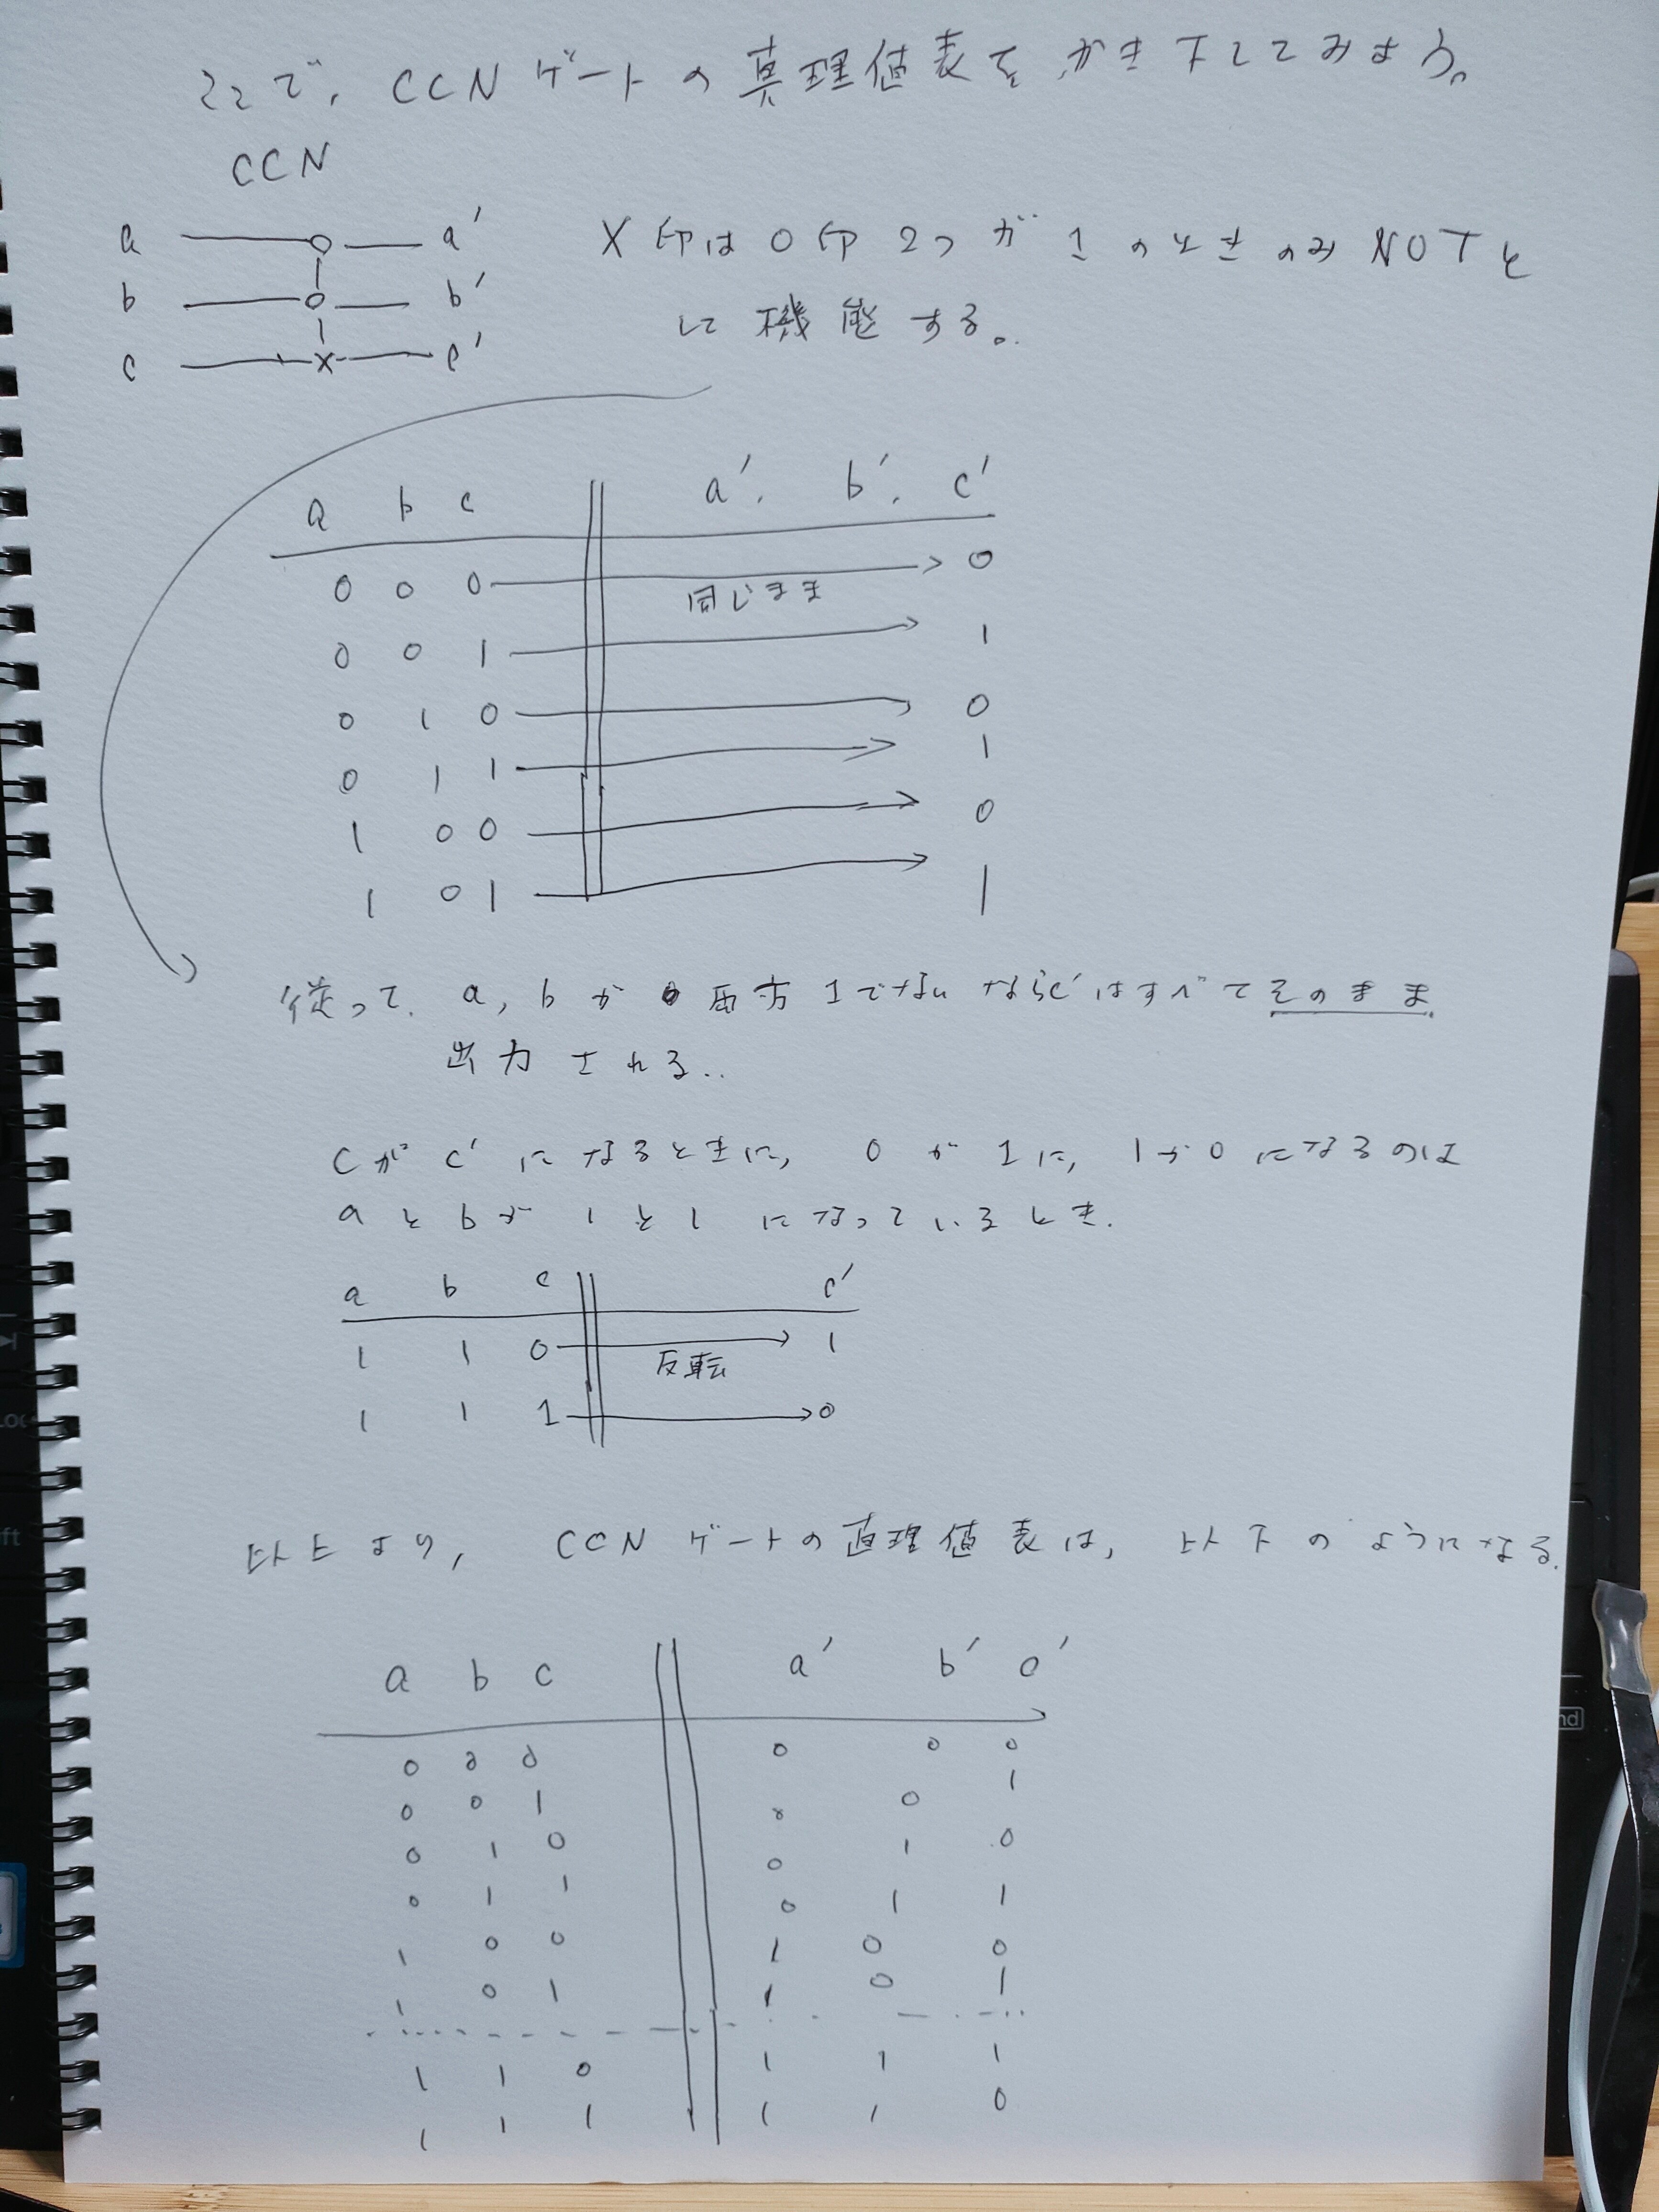 ここで、CCNゲートの真理値表をかき下してみよう。
CCN
a a′
b b′
c X c′
X印はO印2つが1のときのみNOTと
して機能する。
a b c a′, b′, c′
0 0 0 同じまま 0
0 0 1 1
0 1 0 0
0 1 1 1
1 0 0 0
1 0 1 1
従って、a, bが両方1でないならc′はすべてそのまま
出力される..
cがc′になるときに, 0が1に, 1が0になるのは
aとbが1と1になっているとき.
a b c c′
1 1 0 反転 1
1 1 1 0
以上より, CCNゲートの真理値表は, 以下のようになる.
a b c a′ b′ c′
0 0 0 0 0 0
0 0 1 0 0 1
0 1 0 0 1 0
0 1 1 0 1 1
1 0 0 1 0 0
1 0 1 1 0 1
1 1 0 1 1 1
1 1 1 1 1 0